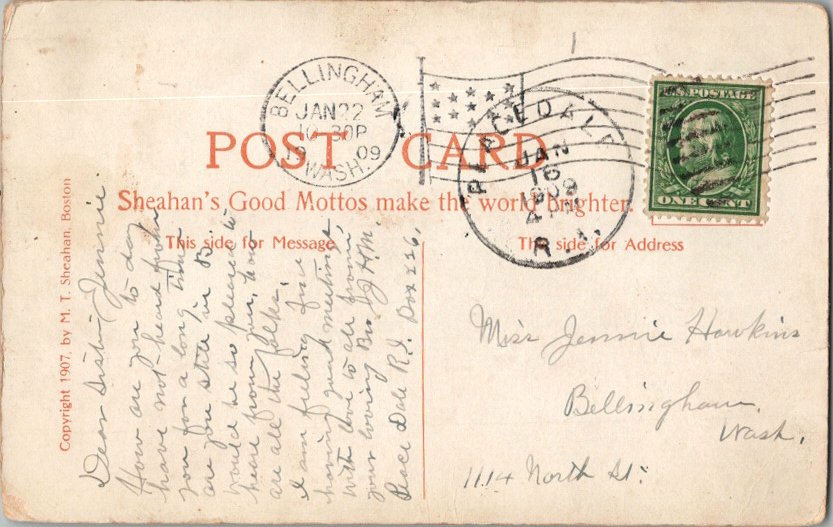 BELLINGHAM
JAN 22
10-30P
19 09
WASH.
PEACEDALE
JAN
16
1909
R.I.
POSTAGE
ONE CENT
POST CARD
Sheahan's Good Mottos make the world brighter.
This side for Message
The side for Address
Copyright 1907, by M. T. Sheahan, Boston
Dear Sister Jennie.
How are you to day
have not heard from
you for a long time
are you still in B.
would be so pleased to
hear from you, how
are all the folks.
I am feeling fine
having good meetings
with love to all from
your loving Bro H.M.
Peace Dale R.I. Box 226,
Miss Jennie Hawkins
Bellingham.
Wash.
1114 North St.